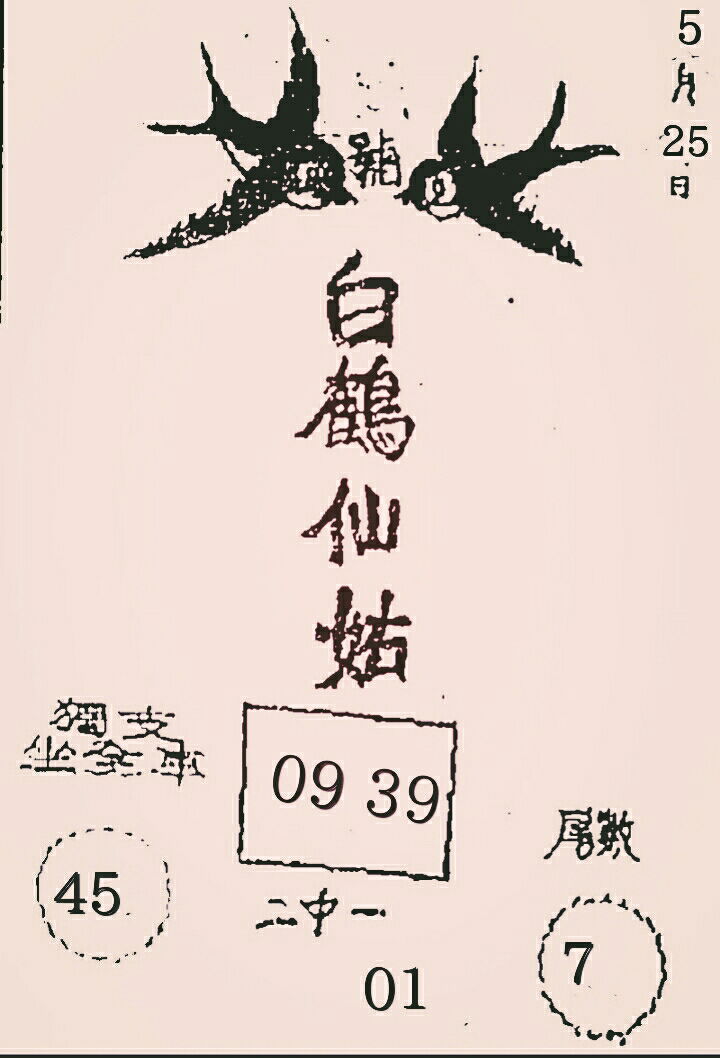 5
月
25
日
號
白
鶴
仙
姑
獨支
坐全車
09 39
45
二中一
尾數
7
01